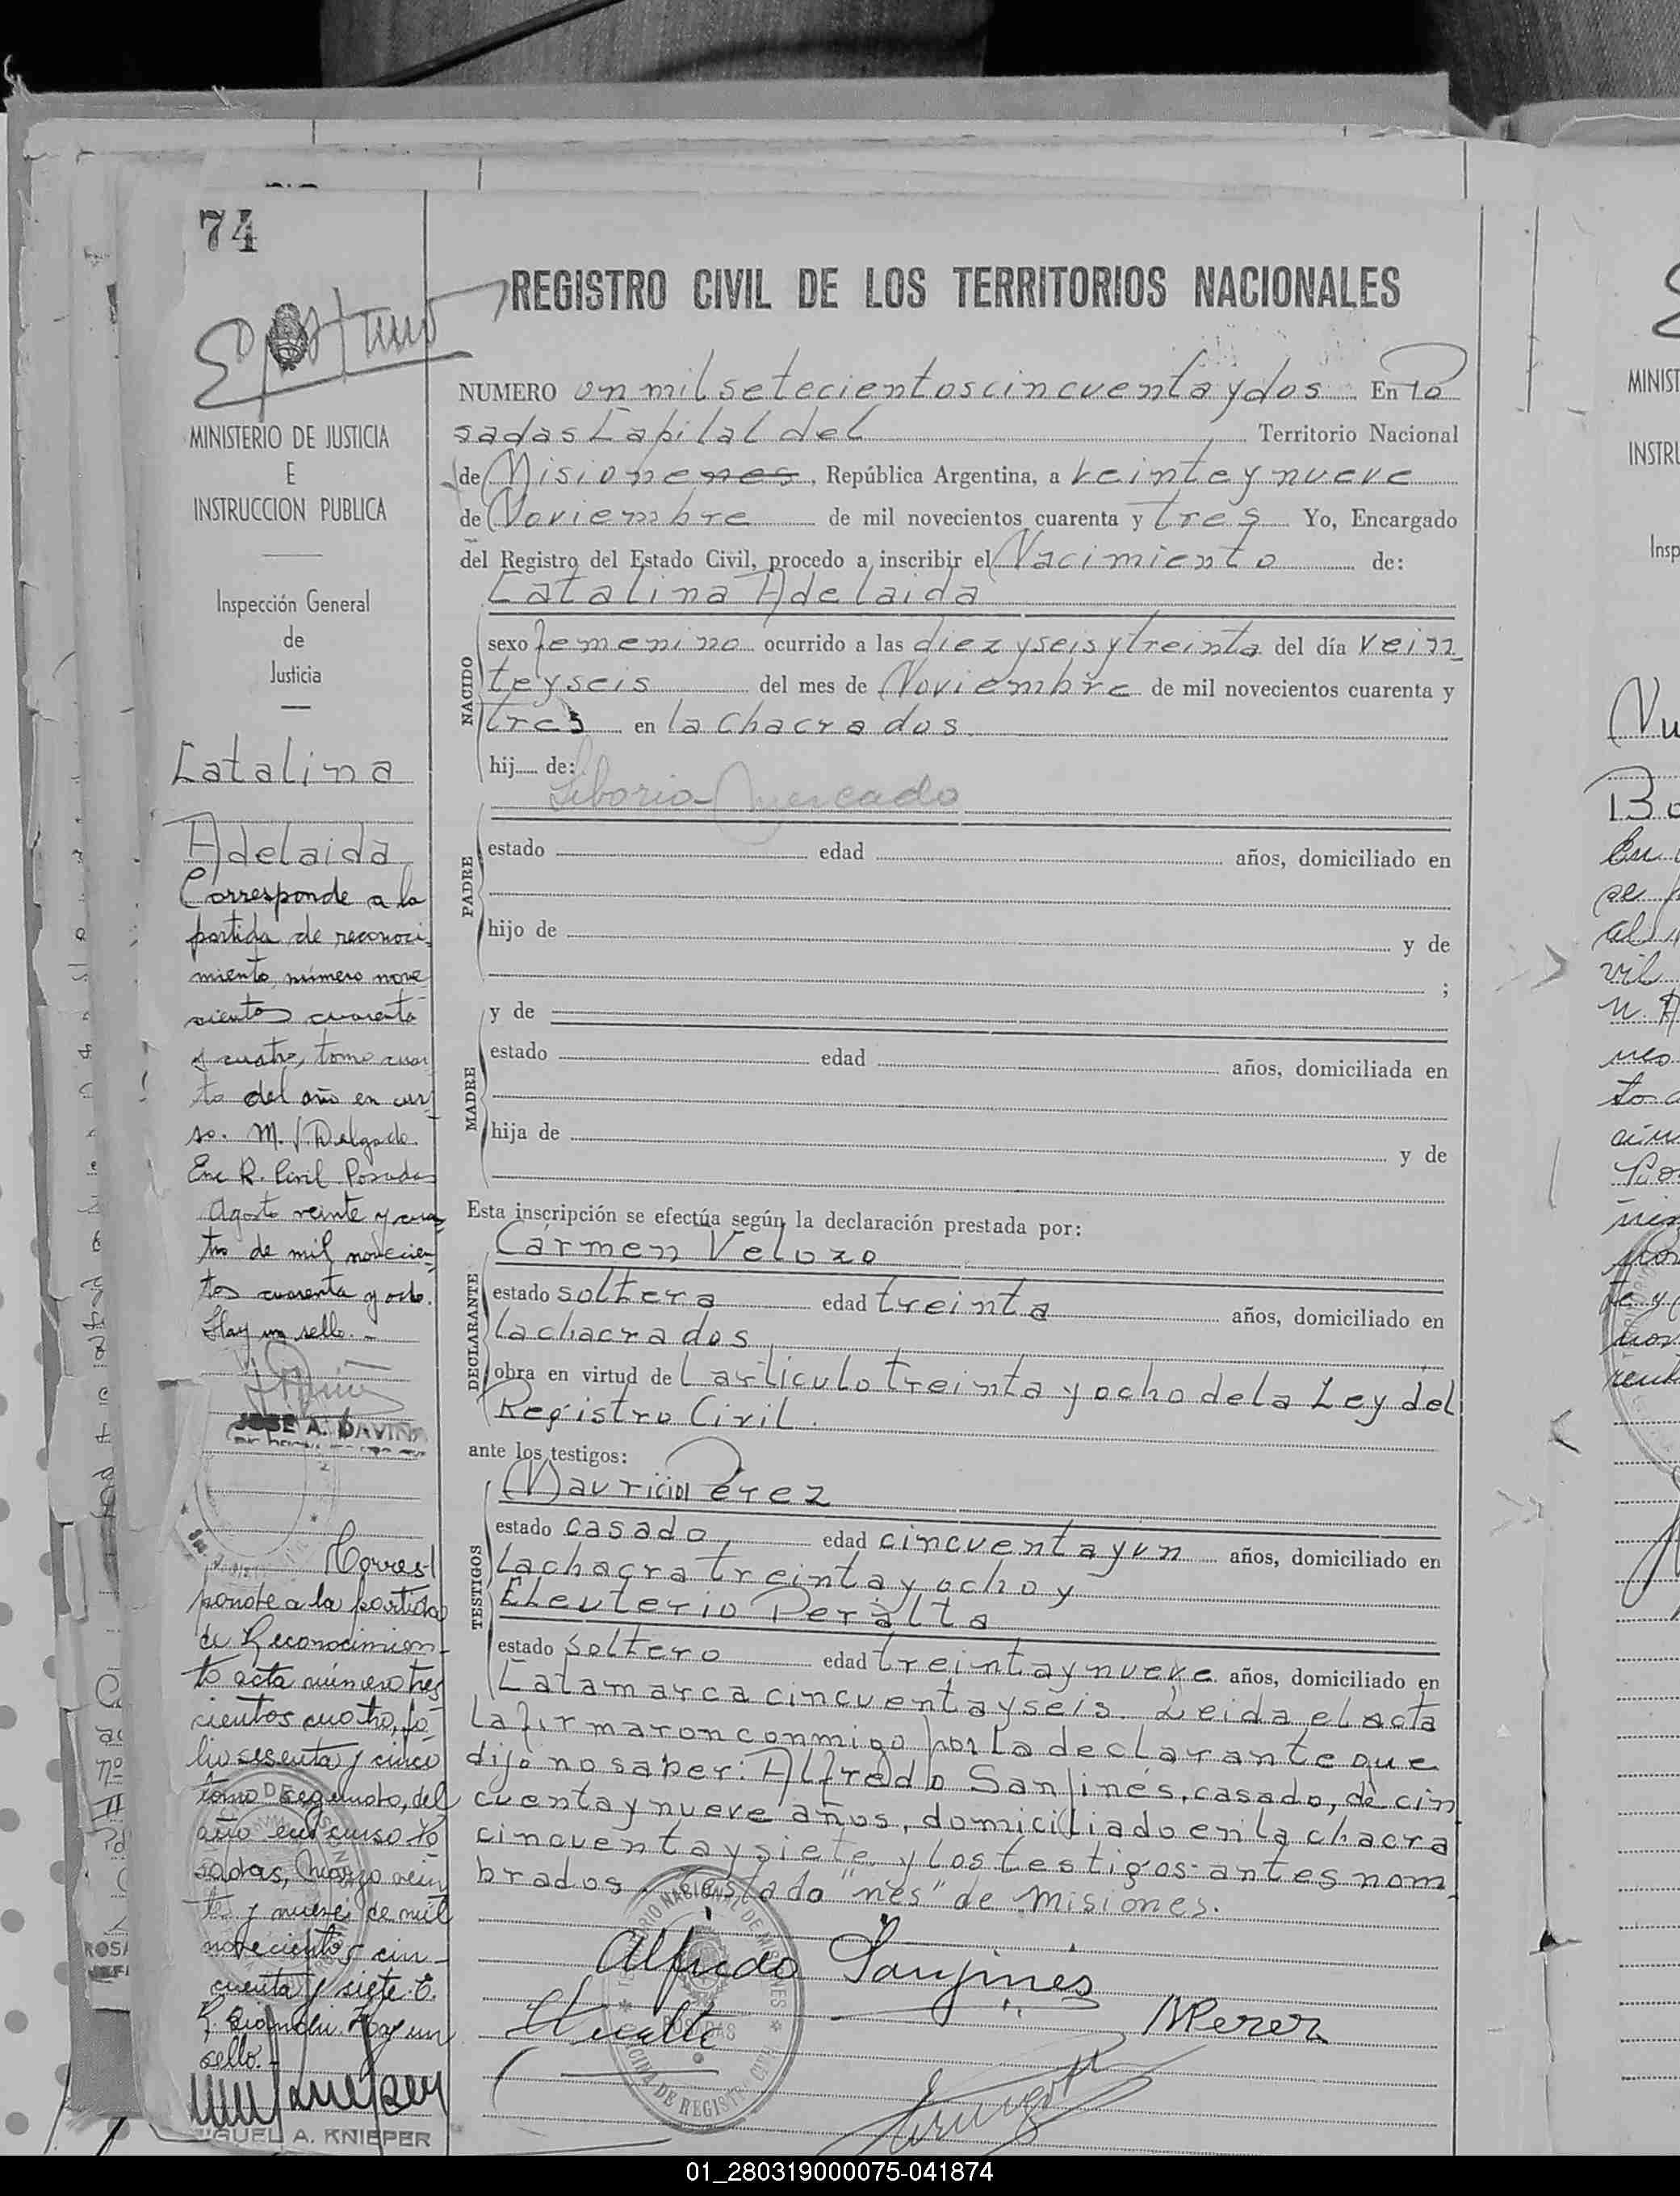 74
REGISTRO CIVIL DE LOS TERRITORIOS NACIONALES
MINISTERIO DE JUSTICIA
E
INSTRUCCION PUBLICA
Inspección General
de
Justicia
Catalina
Adelaida
Corresponde a la
partida de reconoci-
miento número nove
cientos cuarenta
y cuatro, tomo cuar
to del año en cur-
so. M. J. Delgado.
Enc R. Civil Posadas
Agosto veinte y cua-
tro de mil novecien-
tos cuarenta y ocho.
Hay un sello.-
JOSE A. DAVIÑA
Corres-
ponde a la partida
de Reconocimien-
to acta número tres
cientos cuatro, fo-
lio sesenta y cinco
tomo segundo, del
año en curso Po
sadas, Marzo vein
te y nueve de mil
novecientos cin-
cuenta y siete. E.
Hay un
sello.-
MIGUEL A. KNIEPER
NUMERO un mil setecientos cincuenta y dos En Po
sadas Capital del Territorio Nacional
de Misionenes, República Argentina, a veinte y nueve
de Noviembre de mil novecientos cuarenta y tres Yo, Encargado
del Registro del Estado Civil, procedo a inscribir el Nacimiento de:
Catalina Adelaida
NACIDO
sexo femenino ocurrido a las diez y seis y treinta del día vein
te y seis del mes de Noviembre de mil novecientos cuarenta y
tres en la chacra dos
hij de:
Liborio Mercado
PADRE
estado edad años, domiciliado en
hijo de y de
;
y de
MADRE
estado edad años, domiciliada en
hija de y de
Esta inscripción se efectúa según la declaración prestada por:
Cármen Velozo
DECLARANTE
estado soltera edad treinta años, domiciliado en
la chacra dos
obra en virtud del artículo treinta y ocho de la Ley del
Registro Civil.
ante los testigos:
Mauricio Pérez
TESTIGOS
estado casado edad cincuenta y un años, domiciliado en
la chacra treinta y ocho y
Eleuterio Peralta
estado soltero edad treinta y nueve años, domiciliado en
Catamarca cincuenta y seis. Leida el acta
la firmaron conmigo por la declarante que
dijo no saber: Alfredo Sanjinés, casado, de cin
cuenta y nueve años, domiciliado en la chacra
cincuenta y siete y los testigos antes nom-
brados. Testado "nes" de Misiones.
Alfredo Sanjinés
MPerez
POSADAS
OFICINA DE REGISTRO CIVIL
01_280319000075-041874